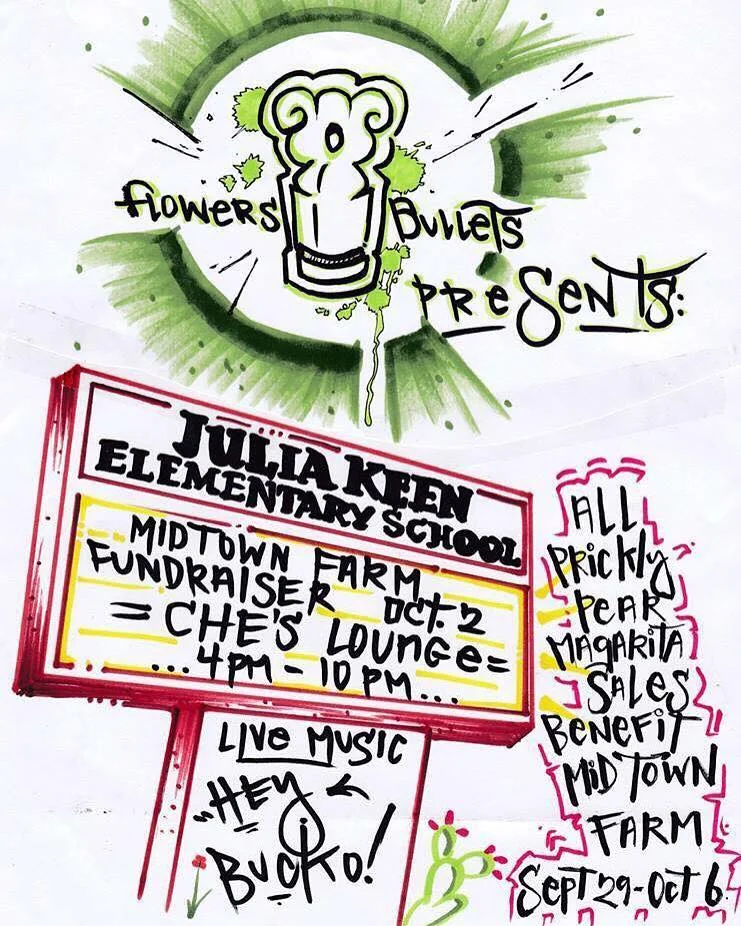 FLOWERS & BULLETS
PReSeNTS:
JULIA KEEN
ELEMENTARY SCHOOL
MIDTOWN FARM
FUNDRAISER OCT. 2
= CHE'S LOUNGe =
...4PM - 10 PM...
LIVe MUSIC
"HEY
BUCKO!
ALL
PRicKly
PEAR
MAGARiTA
SAleS
BENEFiT
MiDTOWN
FARM
SePT 29-OcT 6